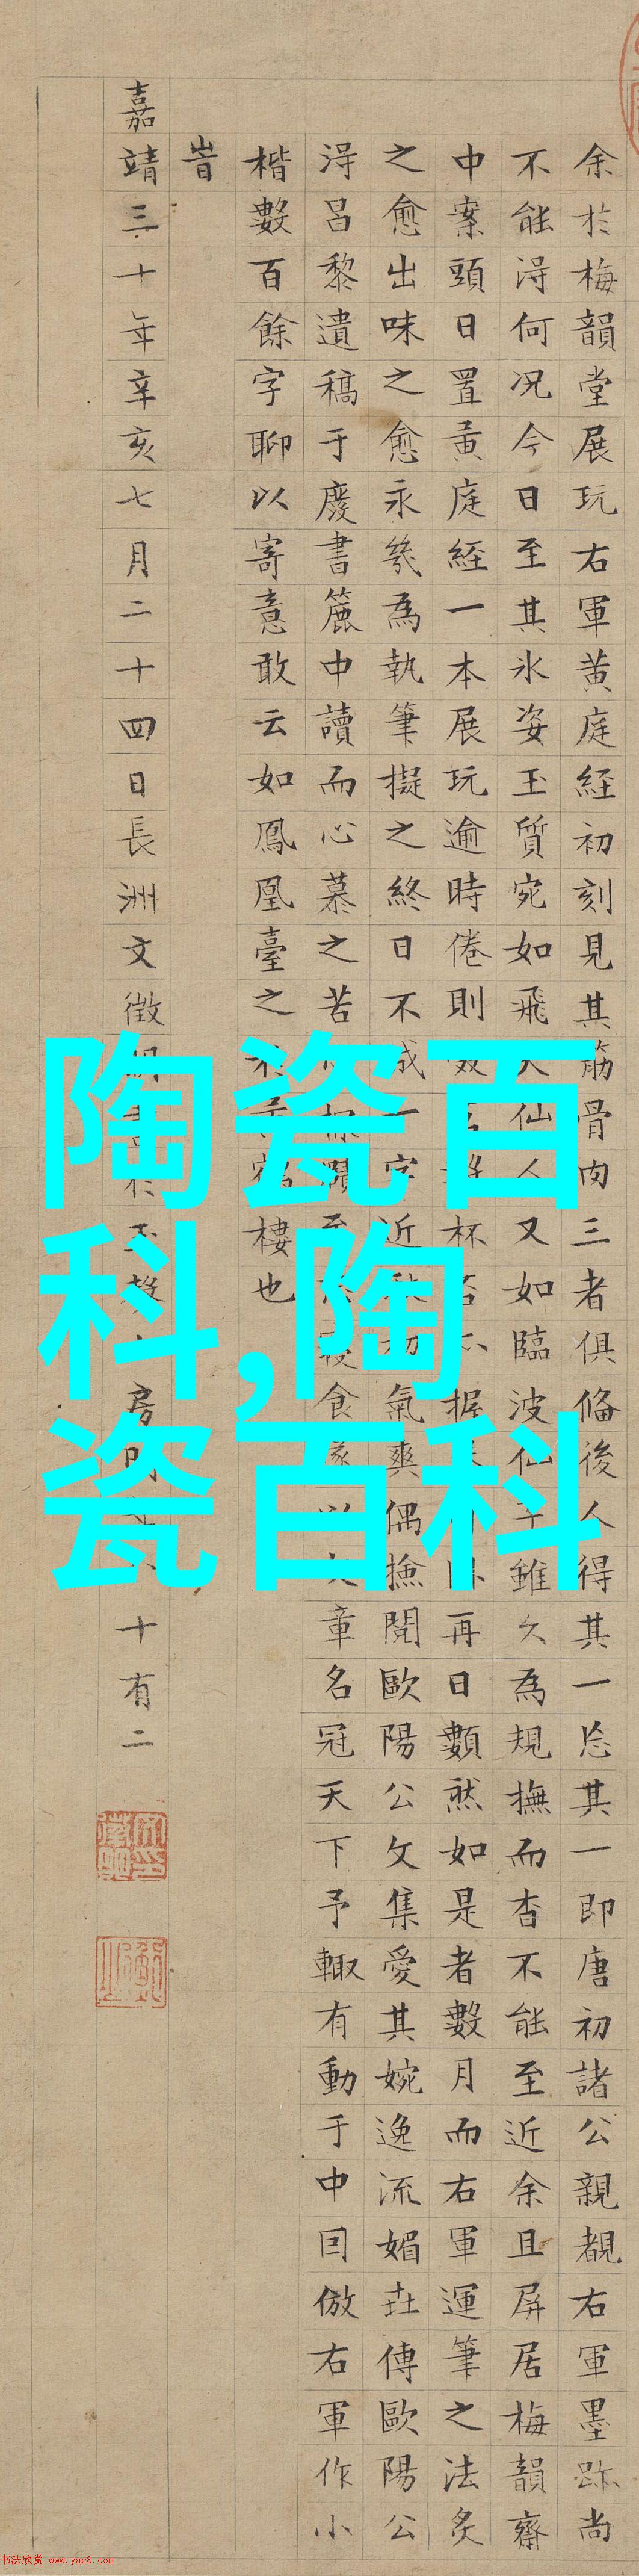 余於梅韻堂展玩右軍黃庭経初刻見其筋骨肉三者俱俻後人得其一忘其一即唐初諸公親覩右軍墨跡尚
不能淂何况今日至其氷姿玉質宛如飛天仙人又如臨波仙子雖久為規撫而杳不能至近余且屏居梅韻齋
中案頭日置黃庭経一本展玩逾時倦則 杯 握 再日數然如是者數月而右軍運筆之法炙
之愈出味之愈永幾為執筆擬之終日不成一字近 氣爽偶撿閱歐陽公文集愛其婉逸流媚
淂呂黎遺稿于廢書簏中讀而心慕之苦 至 寢食 章名冠天下予輙有動于中囙倣右軍作小
楷數百餘字聊以寄意敢云如鳳凰臺之 樓也
旹
嘉靖三十年辛亥七月二十四日長洲文徵明 房 十有二
陶瓷百
科,陶
瓷百科
书法欣赏 www.yac8.com